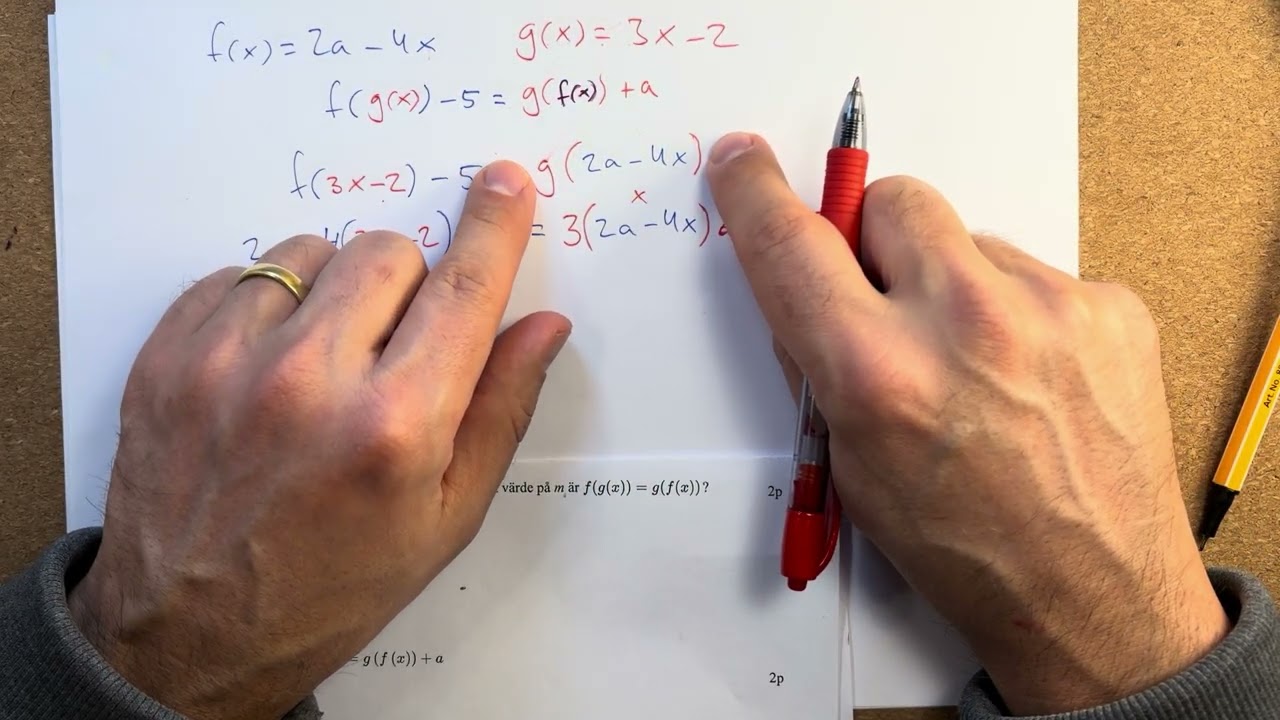 f(x) = 2a - 4x g(x) = 3x - 2
f(g(x)) - 5 = g(f(x)) + a
f(3x-2) - 5 g(2a - 4x)
x
2 4( -2) = 3(2a - 4x)
värde på m är f(g(x)) = g(f(x))? 2p
= g(f(x)) + a
2p
Art.No.